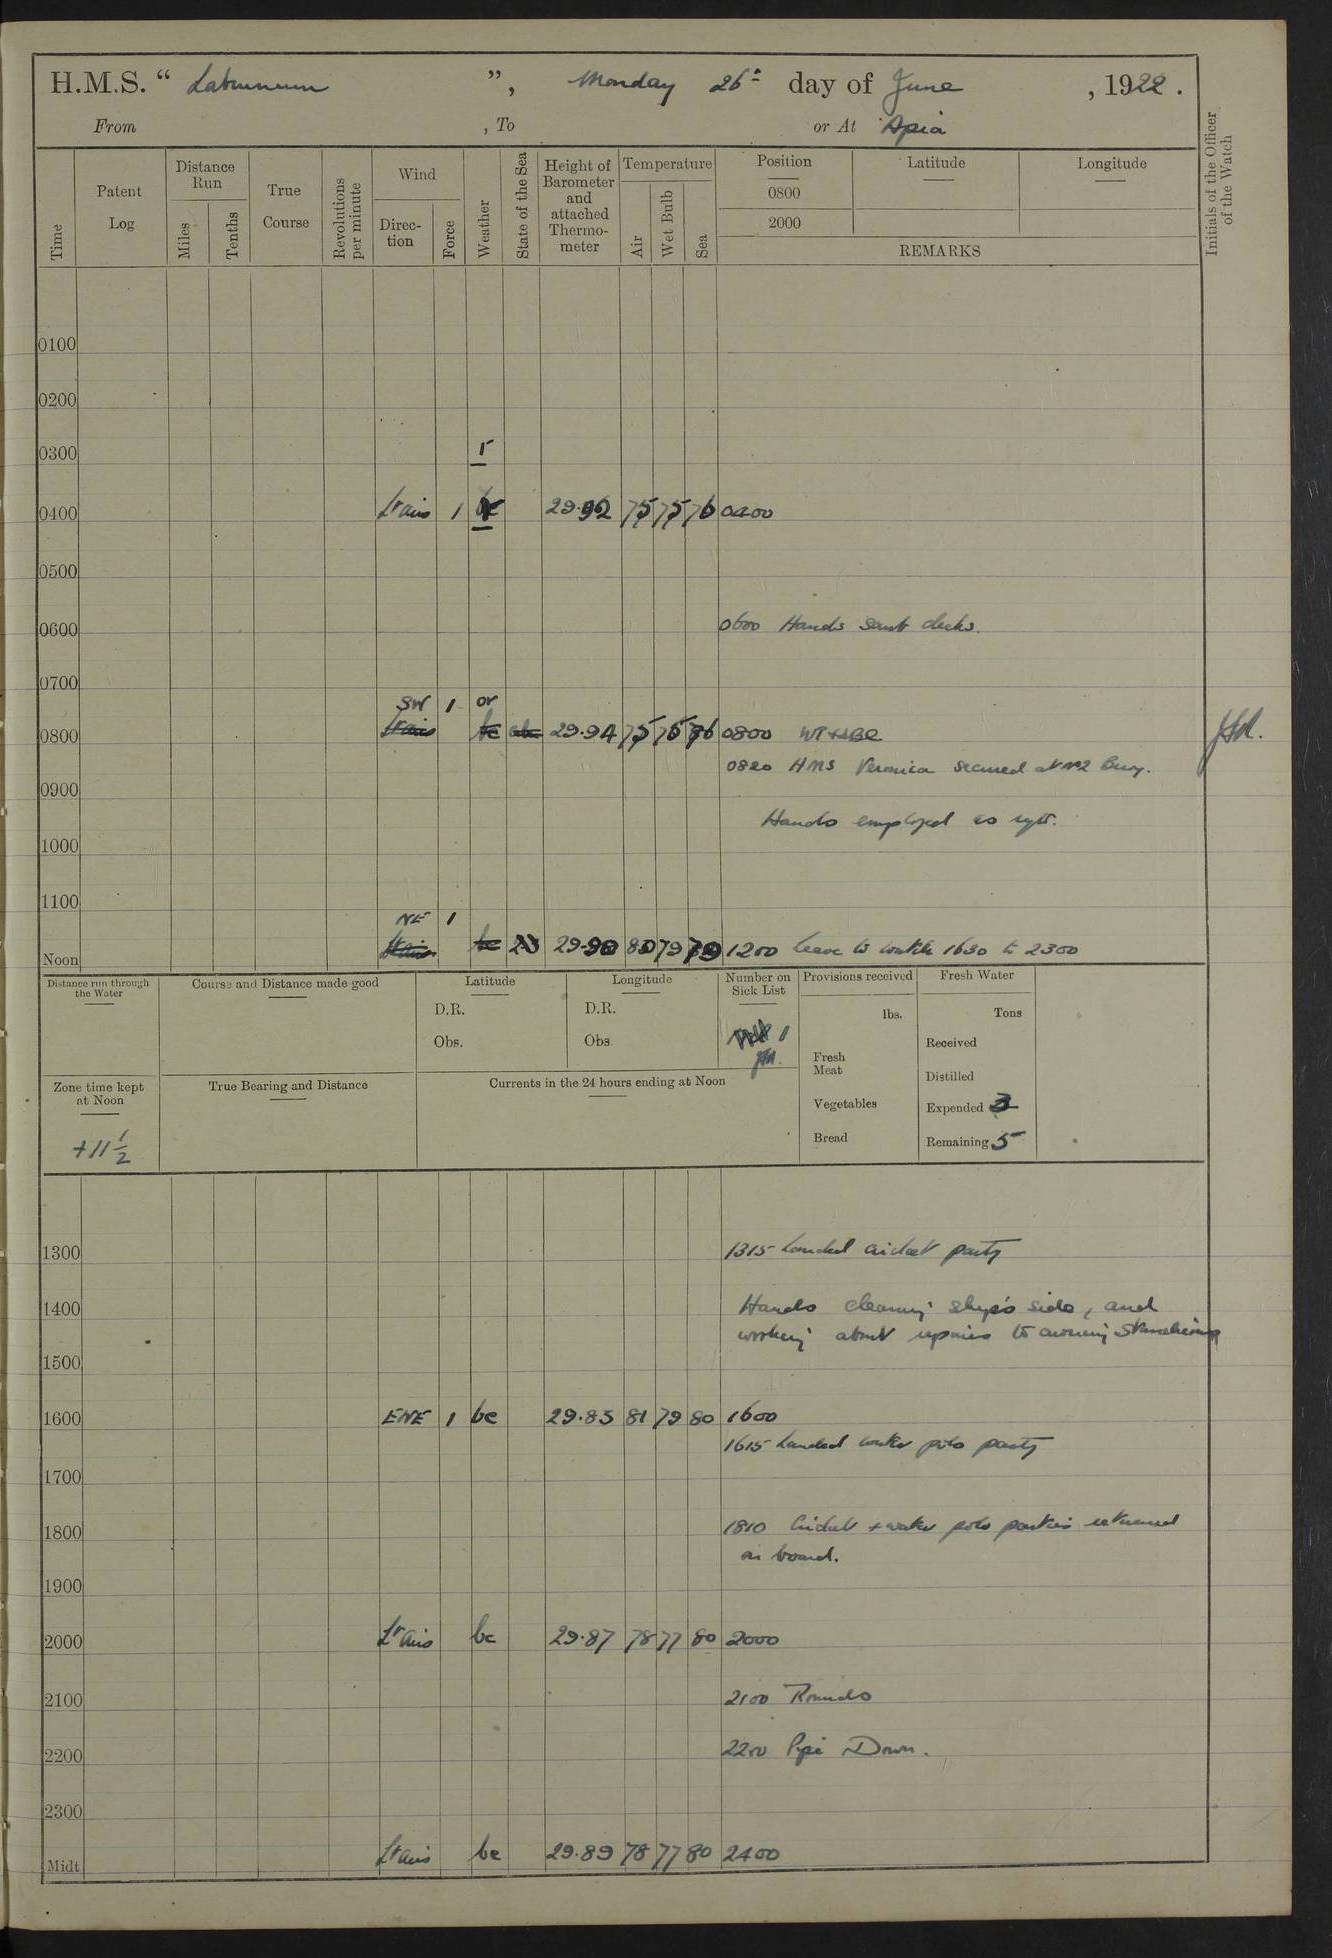 H.M.S. “ Laburnum ”, Monday 26th day of June , 1922 .
From , To or At Apia
Time
Patent Log
Distance Run
Miles
Tenths
True Course
Revolutions per minute
Wind
Direc-tion
Force
Weather
State of the Sea
Height of Barometer and attached Thermo-meter
Temperature
Air
Wet Bulb
Sea
Position
0800
2000
Latitude
Longitude
REMARKS
Initials of the Officer of the Watch
0100
0200
0300 r
0400 Lt airs 1 29.92 75 75 76 0400
0500
0600 0600 Hands scrub decks.
0700
SW 1 or
0800 Lt airs bc 29.94 75 75 76 0800
0820 HMS Veronica secured at No2 Buoy.
0900
Hands employed as reqt.
1000
1100
NE 1
Noon Lt airs bc 29.90 80 79 79 1200 Leave to watch 1630 to 2300
Distance run through the Water
Course and Distance made good
Latitude
D.R.
Obs.
Longitude
D.R.
Obs.
Number on Sick List
1
Provisions received
lbs.
Fresh Meat
Vegetables
Bread
Fresh Water
Tons
Received
Distilled
Expended 3
Remaining 5
Zone time kept at Noon
+11 1/2
True Bearing and Distance
Currents in the 24 hours ending at Noon
1300 1315 Landed cricket party
1400 Hands cleaning ship's side, and
working about repairs to awning stanchions
1500
1600 ENE 1 bc 29.83 81 79 80 1600
1615 Landed water polo party
1700
1800 1810 Cricket + water polo parties returned
on board.
1900
2000 Lt airs bc 29.87 78 77 80 2000
2100 2100 Rounds
2200 2200 Pipe Down.
2300
Midt Lt airs bc 29.89 78 77 80 2400